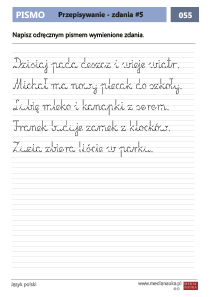 PISMO
Przepisywanie - zdania #5
055
Napisz odręcznym pismem wymienione zdania.
Dzisiaj pada deszcz i wieje wiatr.
Michał ma nowy plecak do szkoły.
Lubię mleko i kanapki z serem.
Franek buduje zamek z klocków.
Zuzia zbiera liście w parku.
Język polski
www.medianauka.pl